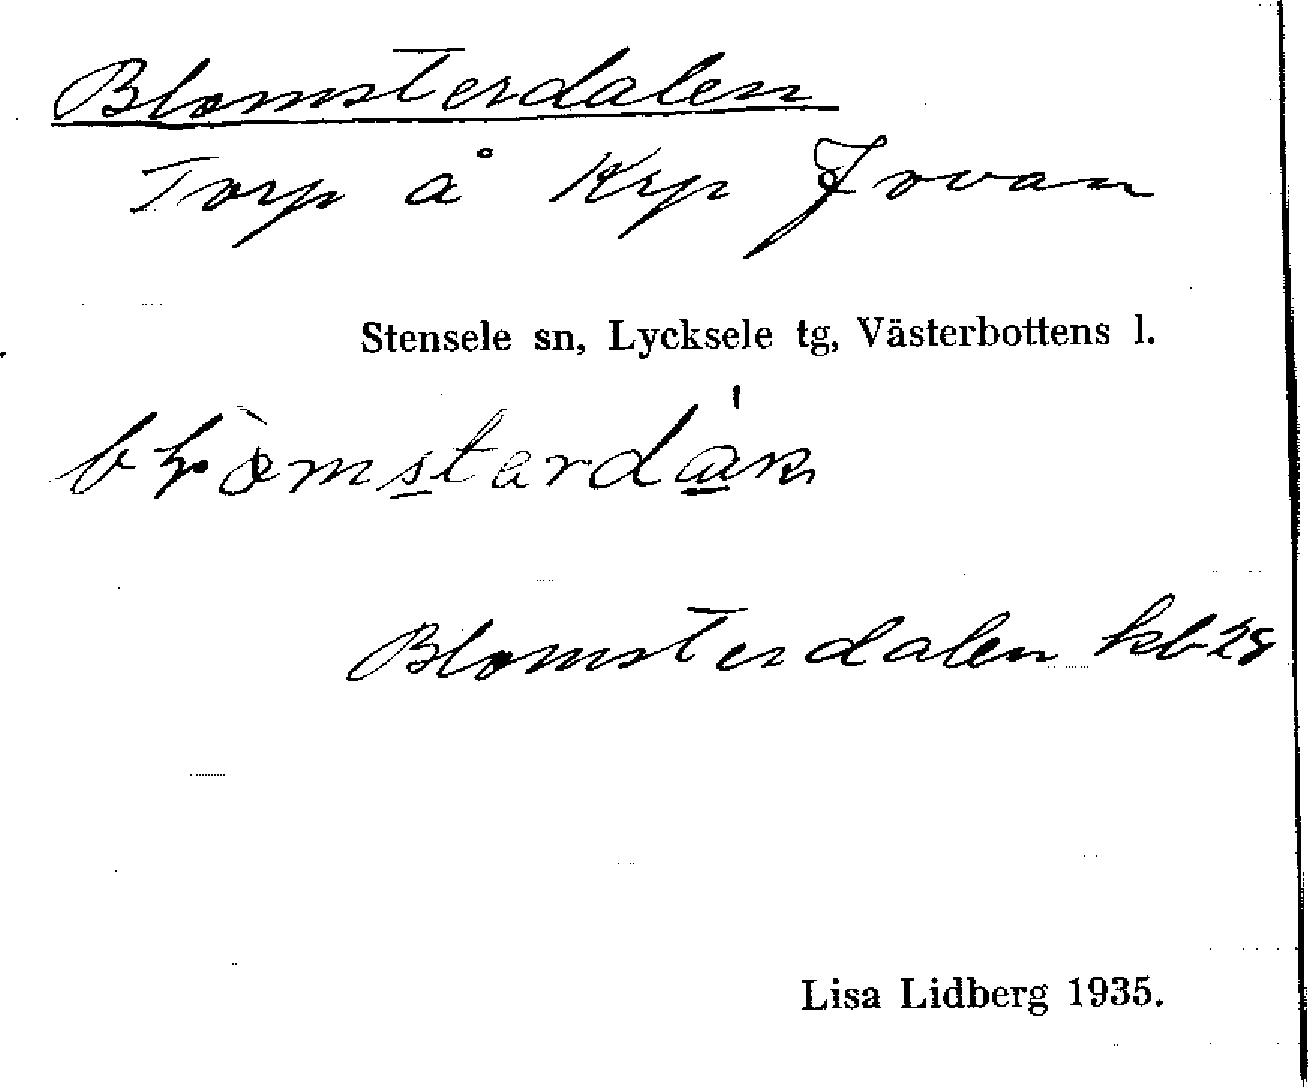 Blomsterdalen
Torp å Krp Jovan
Stensele sn, Lycksele tg, Västerbottens l.
Blomsterdalen kb 28
Lisa Lidberg 1935.